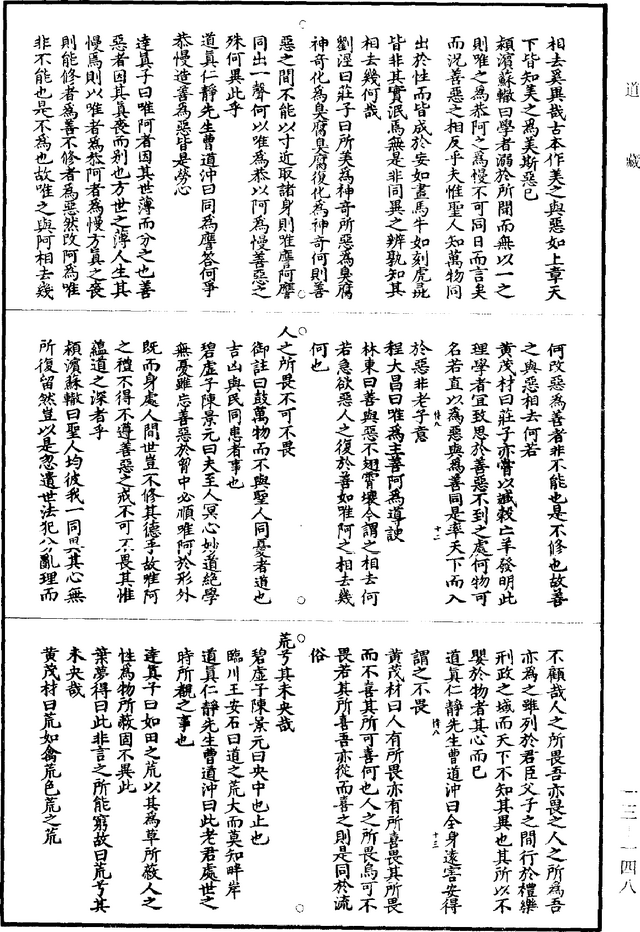 相去奚異哉古本作美之與惡如上章天
下皆知美之為美斯惡已
潁濱蘇轍曰學者溺於所聞而無以一之
則唯之為恭阿之為慢不可同日而言矣
而況善惡之相反乎夫惟聖人知萬物同
出於性而皆成於妄如畫馬牛如刻虎彘
皆非其實泯焉無是非同異之辨孰知其
相去幾何哉
劉涇曰莊子曰所美為神奇所惡為臭腐
神奇化為臭腐臭腐復化為神奇何則善
惡之間不能以寸近取諸身則唯譍阿譍
同出一聲何以唯為恭以阿為慢善惡之
殊何異此乎
道真仁靜先生曹道沖曰同為譍答何爭
恭慢造善為惡皆是勞心
達真子曰唯阿者因其世薄而分之也善
惡者因其真喪而別也方世之薄人生其
慢焉則以唯者為恭阿者為慢方真之喪
則能修者為善不修者為惡然改阿為唯
非不能也是不為也故唯之與阿相去幾
何改惡為善者非不能也是不修也故善
之與惡相去何若
黃茂材曰莊子亦嘗以臧穀亡羊發明此
理學者宜致思於善惡不到之處何物可
名若直以為惡與為善同是率天下而入
於惡非老子意
程大昌曰唯為主善阿為導諛
林東曰善與惡不翅霄壤今謂之相去何
若急欲惡人之復於善如唯阿之相去幾
何也
人之所畏不可不畏
御註曰鼓萬物而不與聖人同憂者道也
吉凶與民同患者事也
碧虛子陳景元曰夫至人冥心妙道絕學
無憂雖忘善惡於胷中必順唯阿於形外
既而身處人間世豈不修其德乎故唯阿
之禮不得不遵善惡之戒不可不畏其惟
蘊道之深者乎
潁濱蘇轍曰聖人均彼我一同異其心無
所復留然豈以是忽遺世法犯分亂理而
不顧哉人之所畏吾亦畏之人之所為吾
亦為之雖列於君臣父子之間行於禮樂
刑政之域而天下不知其異也其所以不
嬰於物者其心而已
道真仁靜先生曹道沖曰全身遠害安得
謂之不畏
黃茂材曰人有所畏亦有所喜畏其所畏
而不喜其所可喜何也人之所畏焉可不
畏若其所喜吾亦從而喜之則是同於流
俗
荒兮其未央哉
碧虛子陳景元曰央中也止也
臨川王安石曰道之荒大而莫知畔岸
道真仁靜先生曹道沖曰此老君處世之
時所觀之事也
達真子曰如田之荒以其為草所蔽人之
性為物所蔽固不異此
葉夢得曰此非言之所能窮故曰荒兮其
未央哉
黃茂材曰荒如禽荒色荒之荒
道藏
一三—一四八